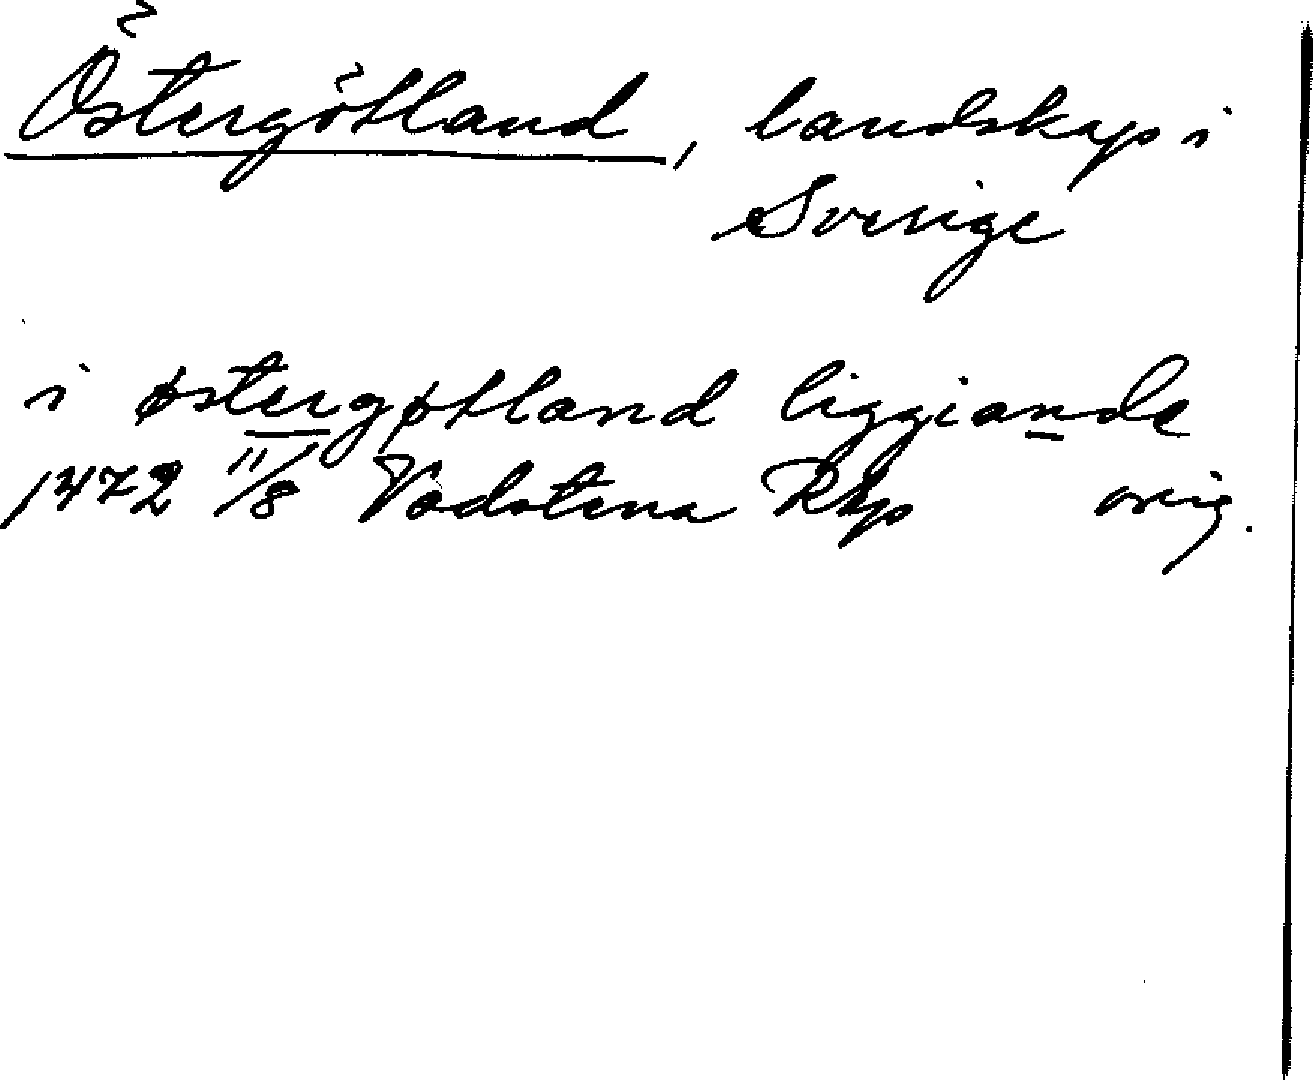 Östergötland, landskap i
Sverige
i østergøtland liggiande
1472 11/8 Vadstena RAp orig.